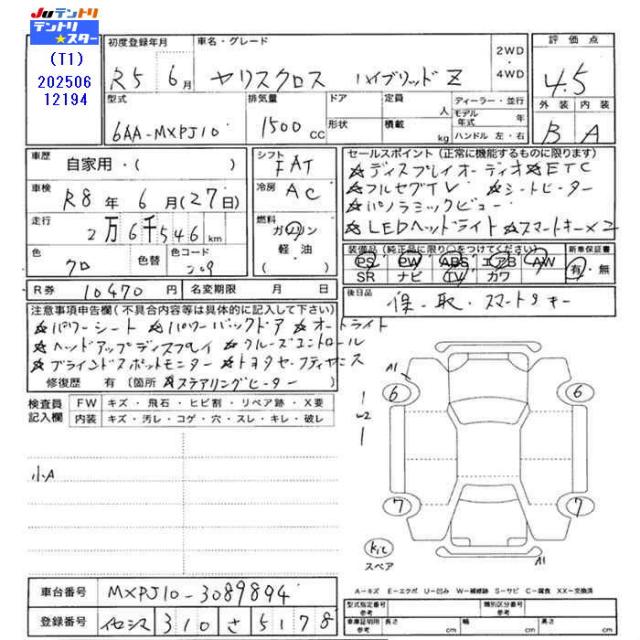 JUテントリ
テントリ★スター
(T1)
202506
12194
初度登録年月
R5 6月
車名・グレード
ヤリスクロス ハイブリッド Z
2WD
・
4WD
評価点
4.5
外装 内装
B A
型式
6AA-MXPJ10
排気量
1500cc
ドア
形状
定員 人
積載 kg
ディーラー・並行
モデル年式 年
ハンドル 左・右
車歴
自家用・( )
車検
R8年 6月(27日)
走行
2万6千546km
色
クロ
色替
色コード
209
シフト
FAT
冷房
AC
燃料
ガソリン
軽・油
( )
セールスポイント(正常に機能するものに限ります)
☆ディスプレイオーディオ☆ETC
☆フルセグTV ☆シートヒーター
☆パノラミックビュー
☆LEDヘッドライト ☆スマートキー×2
装備品(純正品に限り○をつけてください)
PS PW ABS エアB AW
SR ナビ TV カワ
新車保証書
有・無
R券 10470円
名変期限 月 日
後日品
保・取・スマートキー
注意事項申告欄(不具合内容等は具体的に記入して下さい)
☆パワーシート ☆パワーバックドア ☆オートライト
☆ヘッドアップディスプレイ クルーズコントロール
☆ブラインドスポットモニター ☆トヨタセーフティセンス
修復歴 有(箇所 ☆ステアリングヒーター )
検査員
記入欄
FW キズ・飛石・ヒビ割・リペア跡・X要
内装 キズ・汚レ・コゲ・穴・スレ・キレ・破レ
小A
A1
6 6
W2
7 7
A1
kic
スペア
車台番号 MXPJ10-3089894
登録番号 310 さ 5178
A-キズ E-エクボ U-凹み W-補修跡 S-サビ C-腐食 XX-交換済
型式指定番号 類別区分番号
車庫証明用 長さ cm 幅 cm 高さ cm